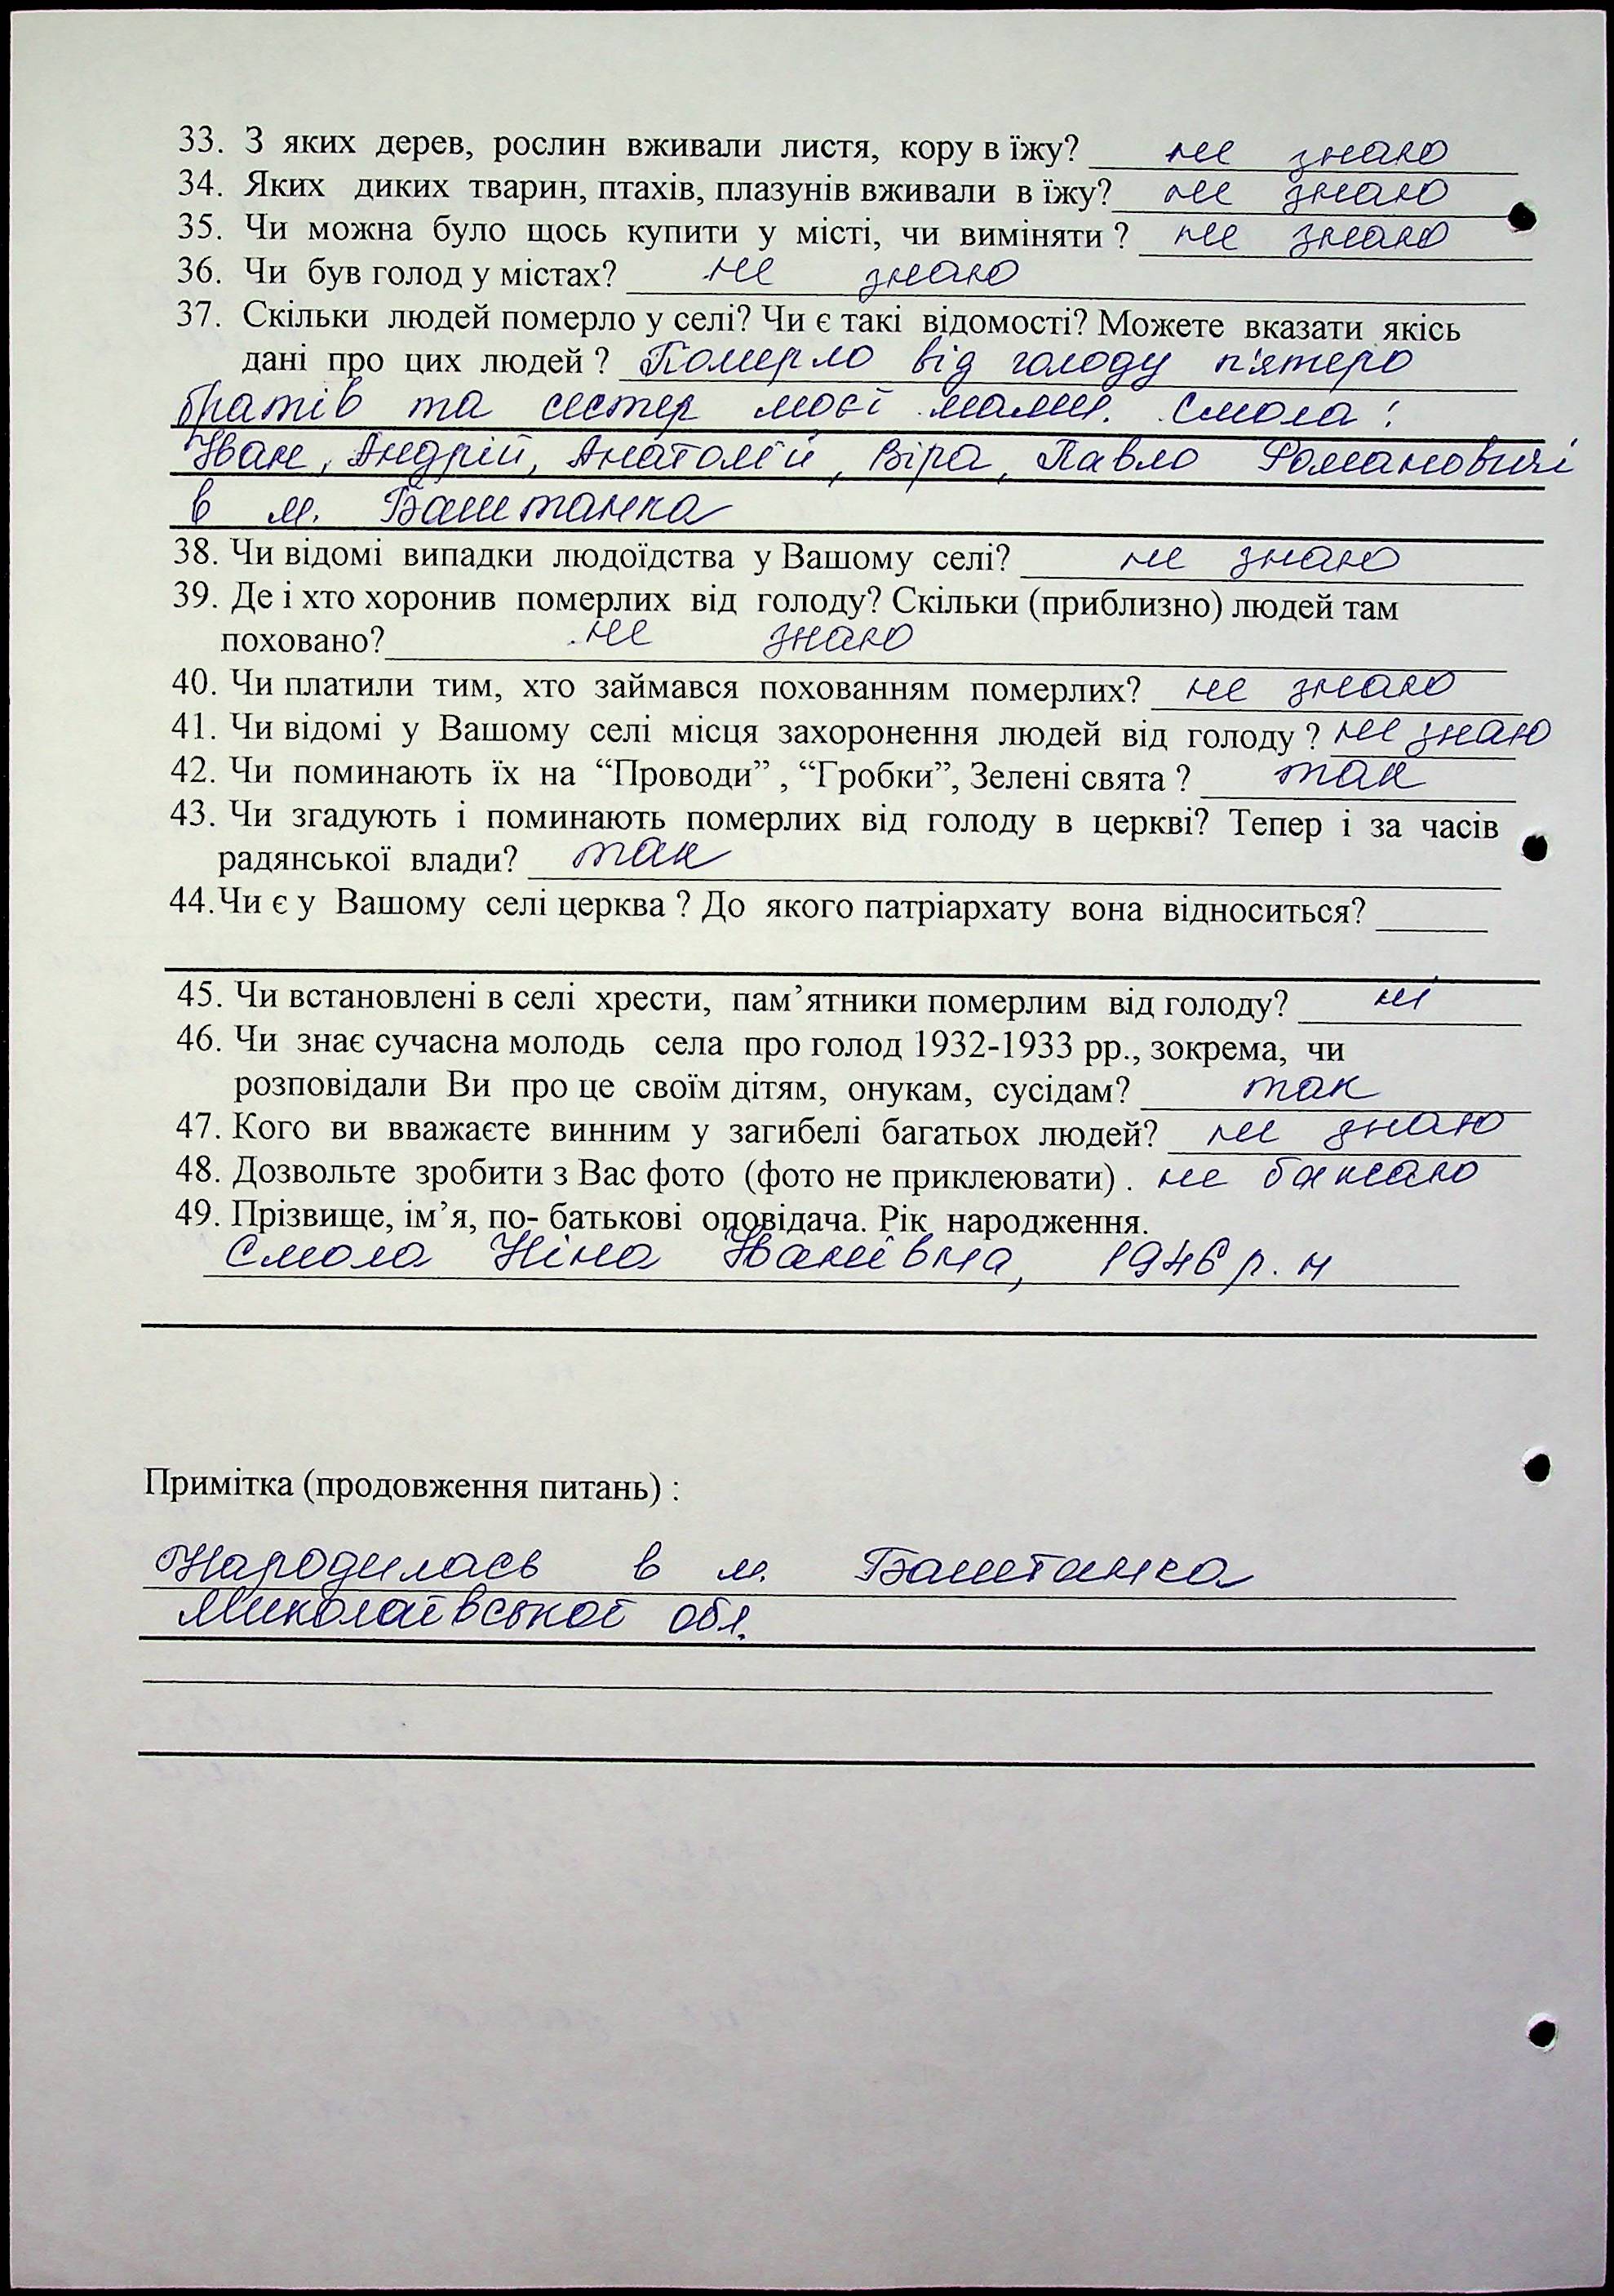 33. З яких дерев, рослин вживали листя, кору в їжу? не знаю
34. Яких диких тварин, птахів, плазунів вживали в їжу? не знаю
35. Чи можна було щось купити у місті, чи виміняти ? не знаю
36. Чи був голод у містах? не знаю
37. Скільки людей померло у селі? Чи є такі відомості? Можете вказати якісь
дані про цих людей ? Померло від голоду п'ятеро
братів та сестер моєї мами. Смола:
Іван, Андрій, Анатолій, Віра, Павло Романовичі
в м. Баштанка
38. Чи відомі випадки людоїдства у Вашому селі? не знаю
39. Де і хто хоронив померлих від голоду? Скільки (приблизно) людей там
поховано? не знаю
40. Чи платили тим, хто займався похованням померлих? не знаю
41. Чи відомі у Вашому селі місця захоронення людей від голоду ? не знаю
42. Чи поминають їх на “Проводи” , “Гробки”, Зелені свята ? так
43. Чи згадують і поминають померлих від голоду в церкві? Тепер і за часів
радянської влади? так
44.Чи є у Вашому селі церква ? До якого патріархату вона відноситься?
45. Чи встановлені в селі хрести, пам’ятники померлим від голоду? ні
46. Чи знає сучасна молодь села про голод 1932-1933 рр., зокрема, чи
розповідали Ви про це своїм дітям, онукам, сусідам? так
47. Кого ви вважаєте винним у загибелі багатьох людей? не знаю
48. Дозвольте зробити з Вас фото (фото не приклеювати) . не бажаю
49. Прізвище, ім’я, по- батькові оповідача. Рік народження.
Смола Ніна Іванівна, 1946 р. н
Примітка (продовження питань) :
Народилась в м. Баштанка
Миколаївської обл.